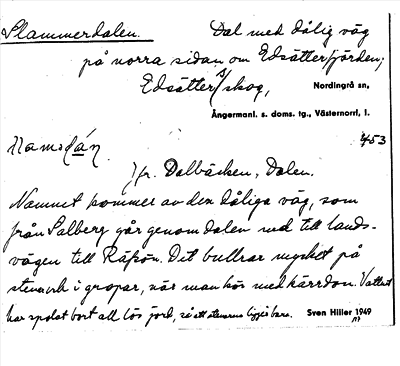 Slammerdalen. Dal med dålig väg
på norra sidan om Edsätterfjärden;
Edsätters skog, Nordingrå sn,
Ångermanl. s. doms. tg., Västernorrl. l.
453
jfr. Dalbäcken, Dalen.
Namnet kommer av den dåliga väg, som
från Salberg går genom dalen ned till lands-
vägen till Räfsön. Det bullrar mycket på
stenar i gropar, när man kör med kärrdon. Vattnet
har spolat bort all lös jord, så att stenarna ligga bara. Sven Hiller 1949